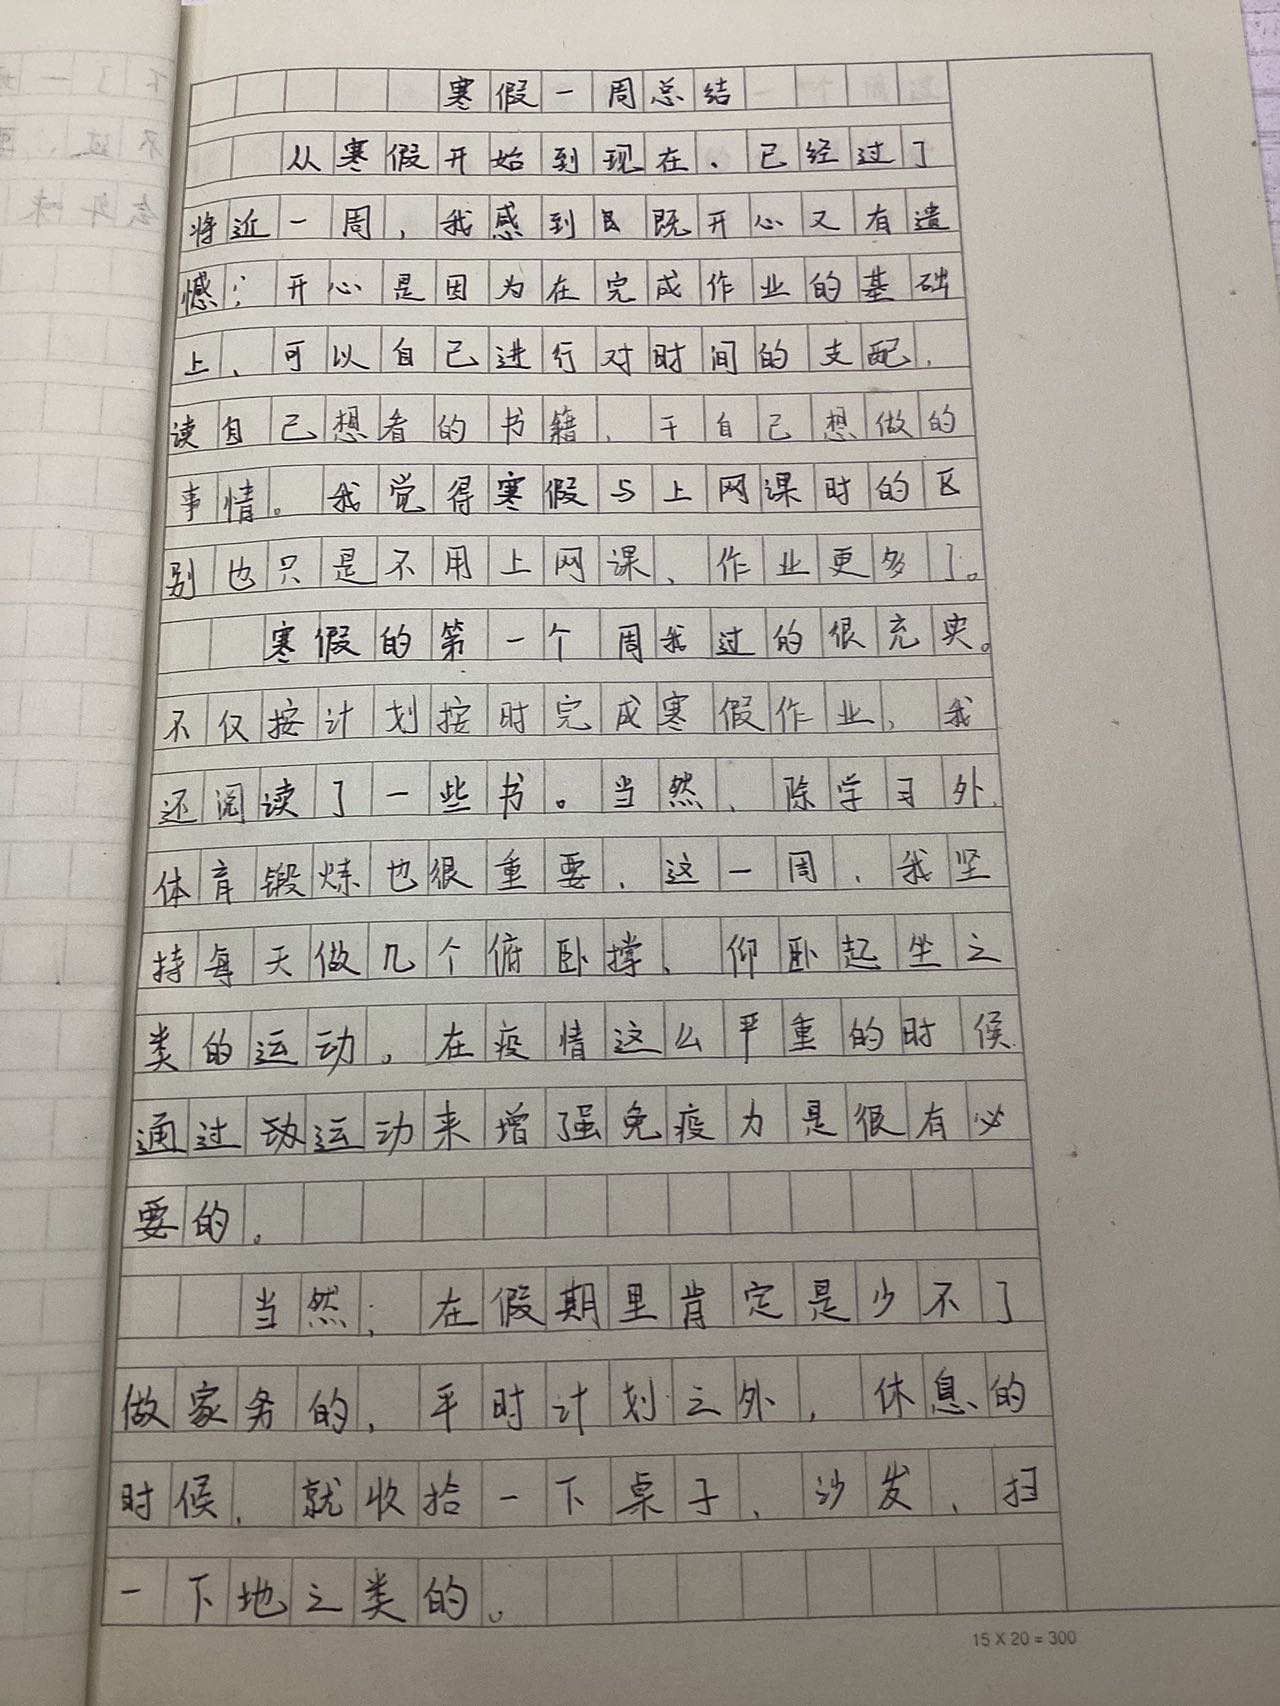 寒假一周总结
从寒假开始到现在、已经过了
将近一周，我感到既开心又有遗
憾；开心是因为在完成作业的基础
上、可以自己进行对时间的支配，
读自己想看的书籍，干自己想做的
事情。我觉得寒假与上网课时的区
别也只是不用上网课、作业更多了。
寒假的第一个周我过的很充实。
不仅按计划按时完成寒假作业，我
还阅读了一些书。当然、除学习外，
体育锻炼也很重要，这一周，我坚
持每天做几个俯卧撑、仰卧起坐之
类的运动。在疫情这么严重的时候，
通过运动来增强免疫力是很有必
要的。
当然；在假期里肯定是少不了
做家务的，平时计划之外，休息的
时候，就收拾一下桌子、沙发、扫
一下地之类的。
15 X 20 = 300